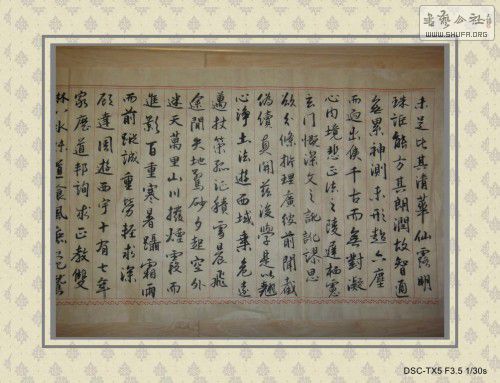 未足比其清華仙露明
珠詎能方其朗潤故智通
無累神測未形超六塵
而迥出隻千古而無對凝
心內境悲正法之陵遲栖慮
玄門慨深文之訛謬思
欲分條析理廣彼前聞截
偽續真開茲後學是以翹
心淨土法遊西域乘危遠
邁杖策孤征積雪晨飛
途間失地驚砂夕起空外
迷天萬里山川撥煙霞而
進影百重寒暑躡霜雨
而前蹤誠重勞輕求深
願達周遊西宇十有七年
窮歷道邦詢求正教雙
林八水味道食風
WWW.SHUFA.ORG
DSC-TX5 F3.5 1/30s